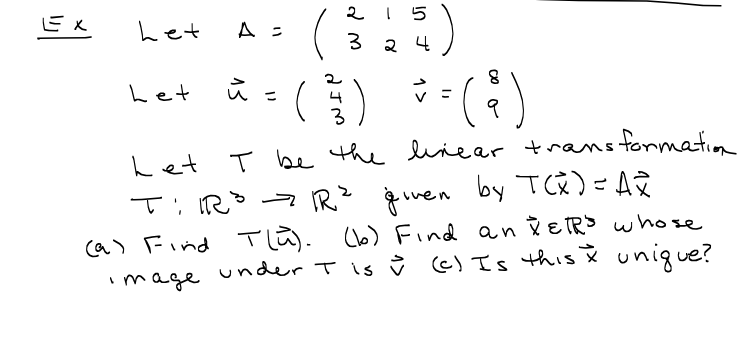 Ex Let A = ( 2 1 5
3 2 4 )
Let u⃗ = ( 2
4
3 ) v⃗ = ( 8
9 )
Let T be the linear transformation
T: ℝ³ → ℝ² given by T(x⃗) = Ax⃗
(a) Find T(u⃗). (b) Find an x⃗ ∈ ℝ³ whose
image under T is v⃗ (c) Is this x⃗ unique?